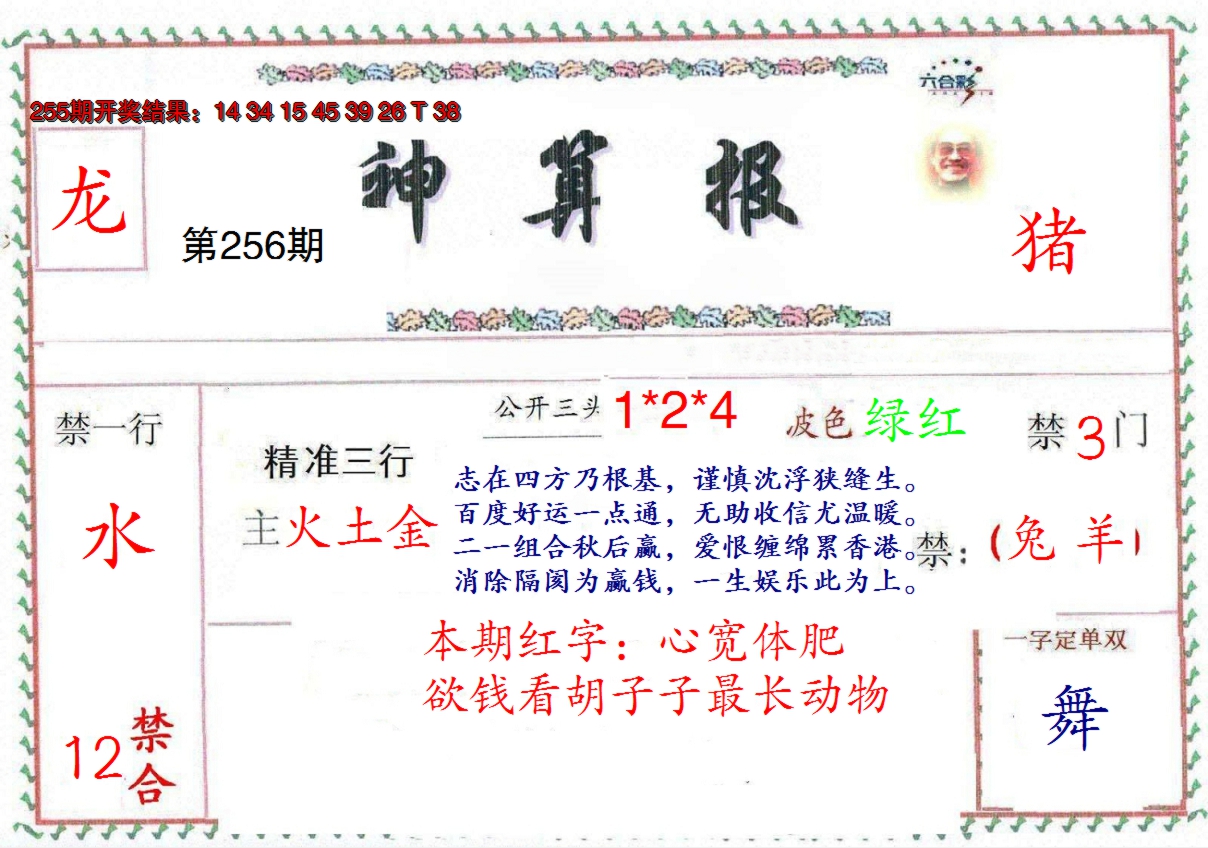 六合彩
255期开奖结果：14 34 15 45 39 26 T 38
神算报
龙
第256期
猪
禁一行
水
12禁合
精准三行
主火土金
公开三头 1*2*4
波色 绿红
禁3门
志在四方乃根基，谨慎沈浮狭缝生。
百度好运一点通，无助收信尤温暖。
二一组合秋后赢，爱恨缠绵累香港。
消除隔阂为赢钱，一生娱乐此为上。
禁：（兔 羊）
本期红字：心宽体肥
欲钱看胡子子最长动物
一字定单双
舞